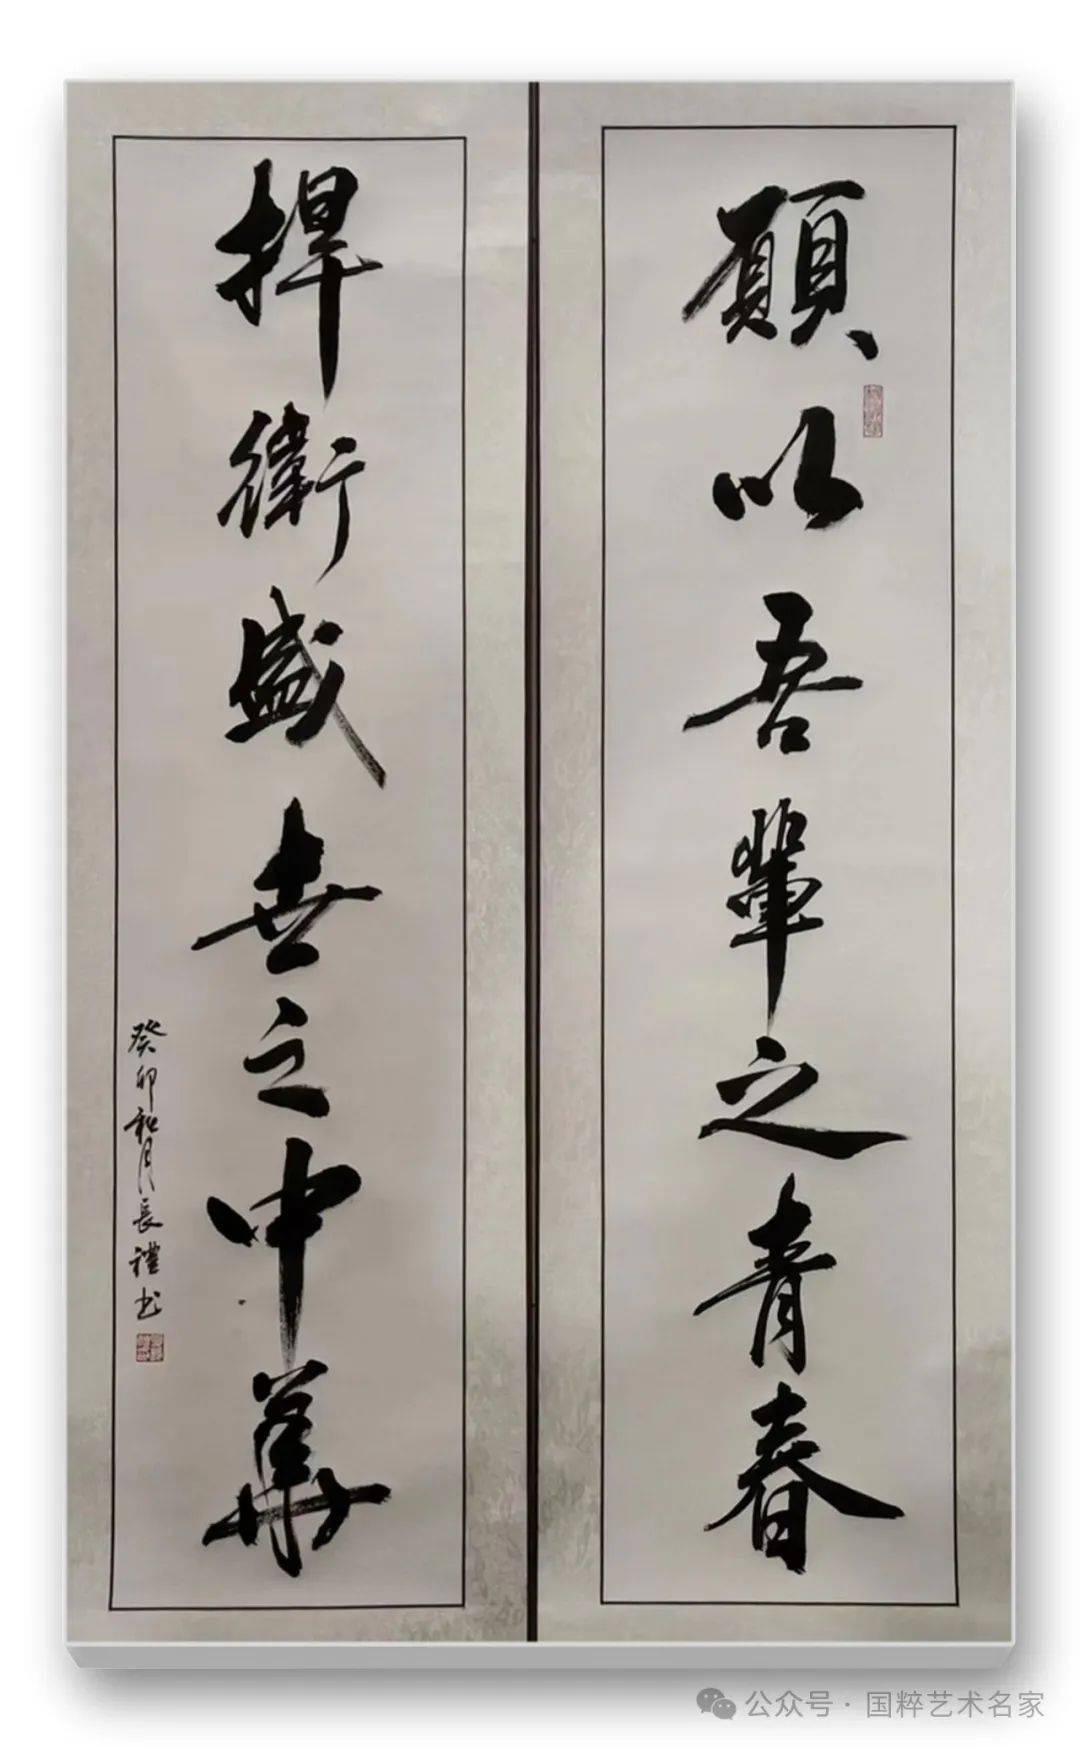 願以吾輩之青春
捍衛盛世之中華
癸卯和月長禮书
公众号·国粹艺术名家